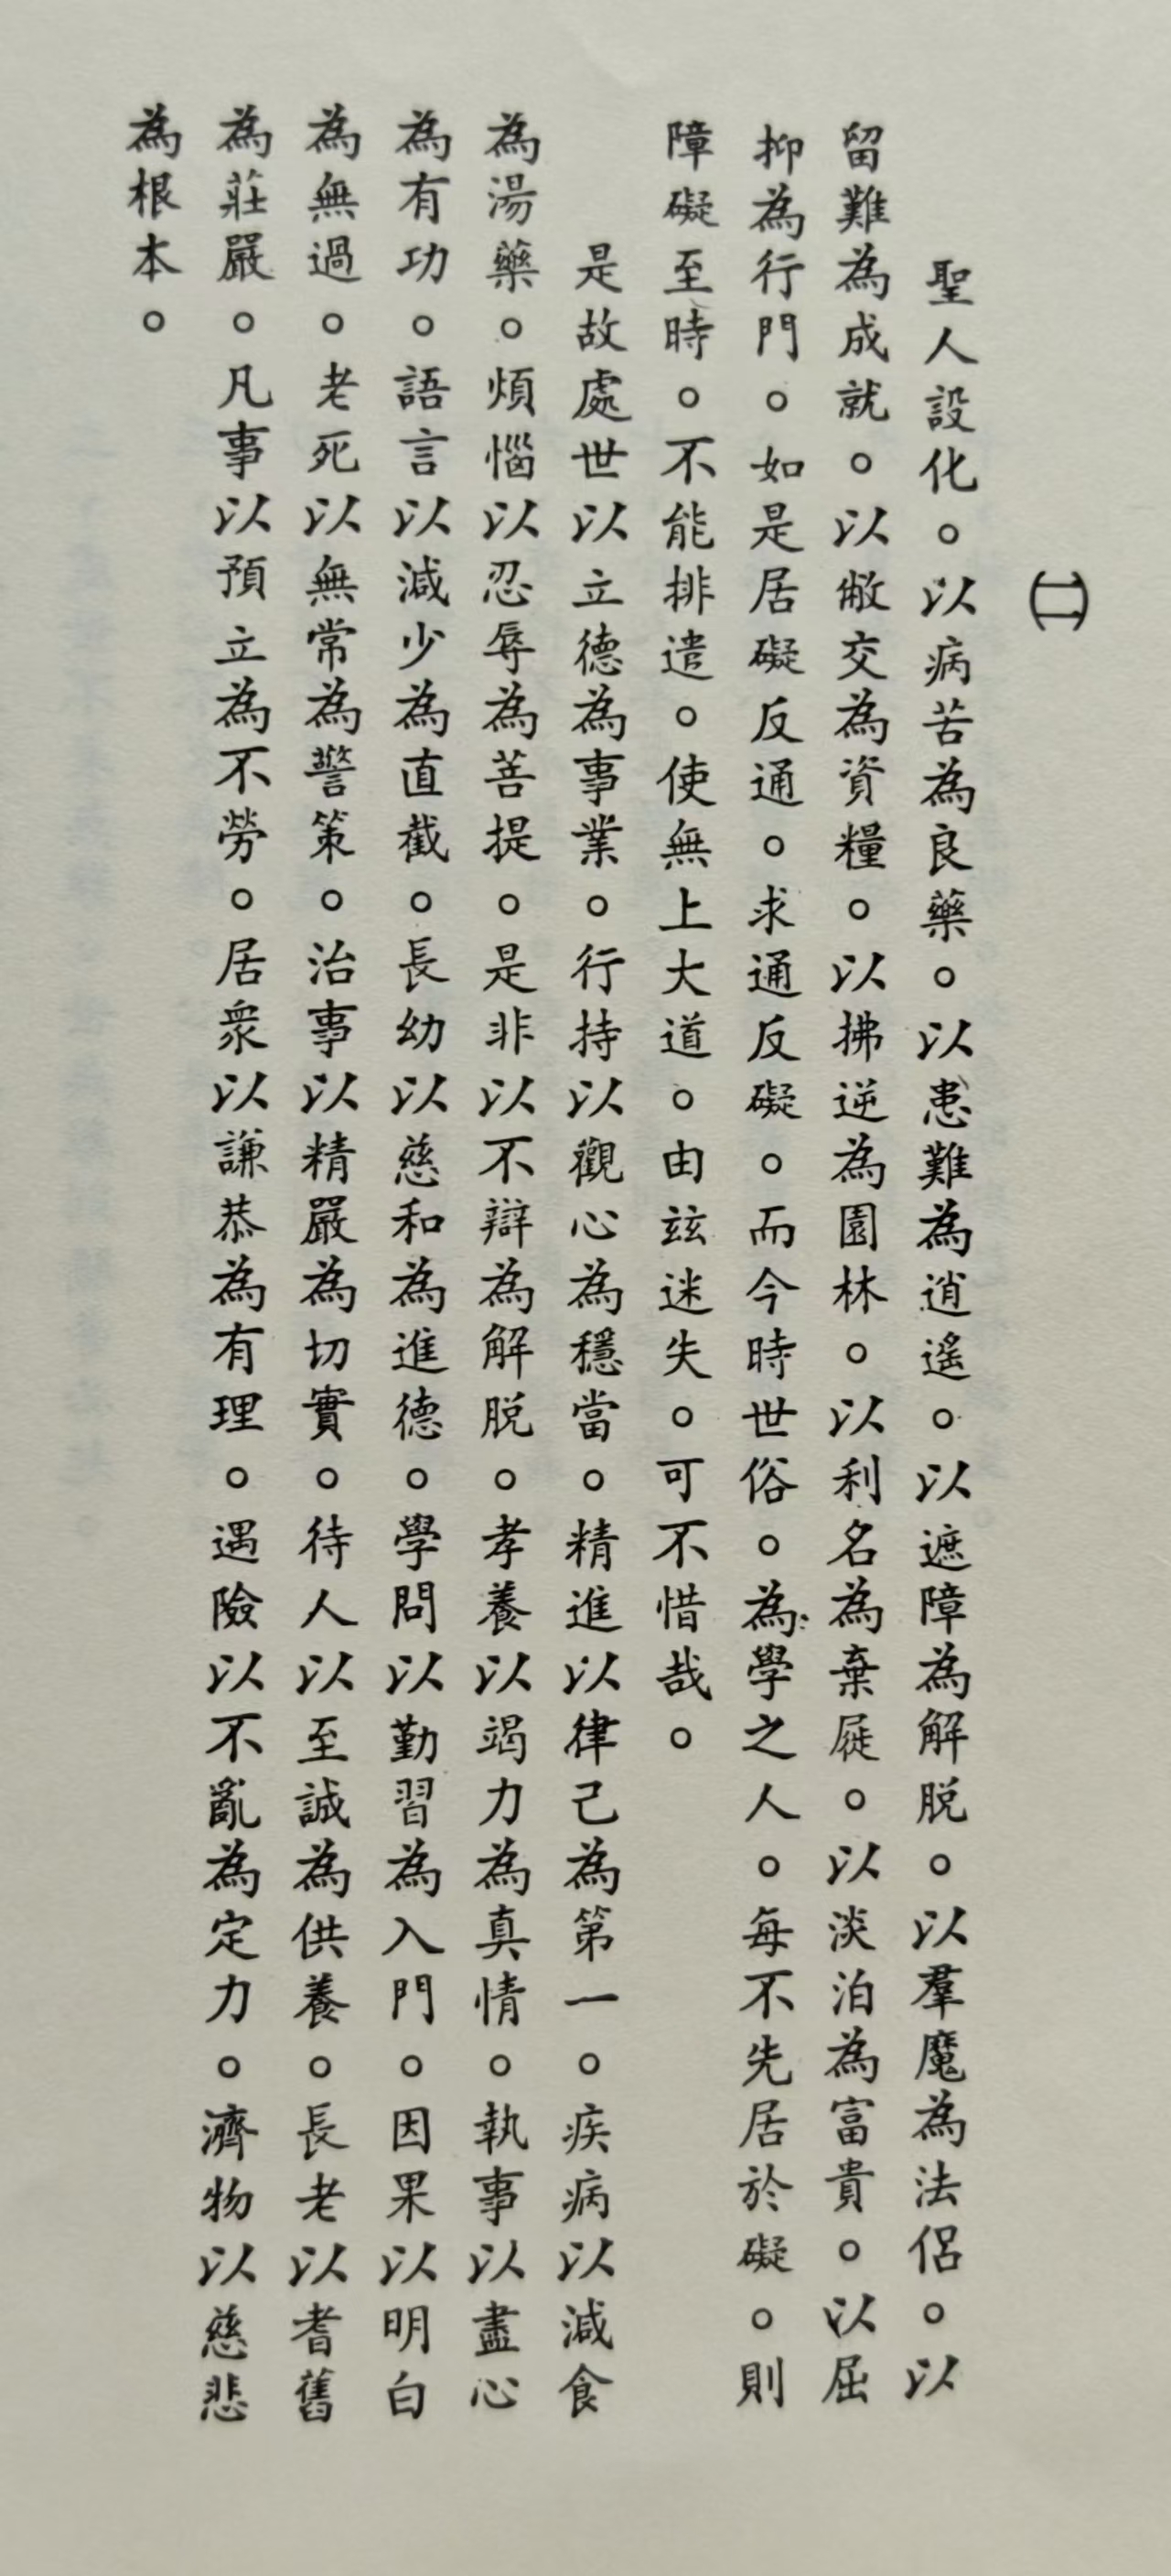 (二)
聖人設化。以病苦為良藥。以患難為逍遙。以遮障為解脫。以羣魔為法侶。以
留難為成就。以敝交為資糧。以拂逆為園林。以利名為棄屣。以淡泊為富貴。以屈
抑為行門。如是居礙反通。求通反礙。而今時世俗。為學之人。每不先居於礙。則
障礙至時。不能排遣。使無上大道。由玆迷失。可不惜哉。
是故處世以立德為事業。行持以觀心為穩當。精進以律己為第一。疾病以減食
為湯藥。煩惱以忍辱為菩提。是非以不辯為解脫。孝養以竭力為真情。執事以盡心
為有功。語言以減少為直截。長幼以慈和為進德。學問以勤習為入門。因果以明白
為無過。老死以無常為警策。治事以精嚴為切實。待人以至誠為供養。長老以耆舊
為莊嚴。凡事以預立為不勞。居衆以謙恭為有理。遇險以不亂為定力。濟物以慈悲
為根本。